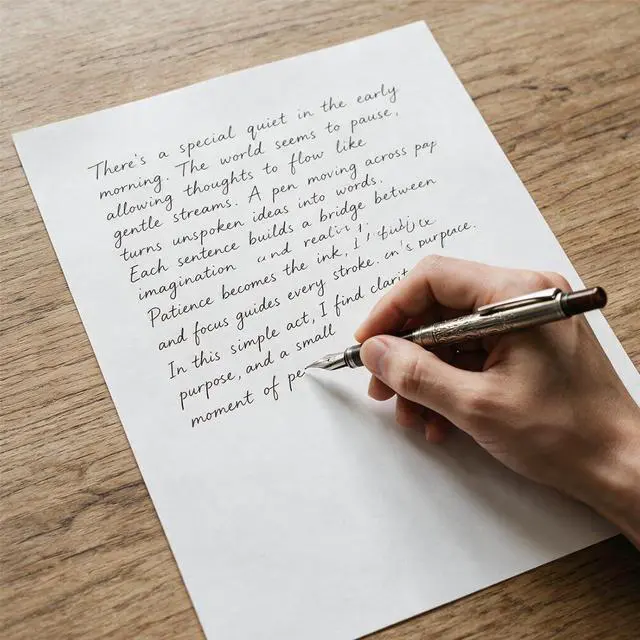 There's a special quiet in the early
morning. The world seems to pause,
allowing thoughts to flow like
gentle streams. A pen moving across pap
turns unspoken ideas into words.
Each sentence builds a bridge between
imagination and
Patience becomes the ink,
and focus guides every stroke.
In this simple act, I find clarit
purpose, and a small
moment of pe